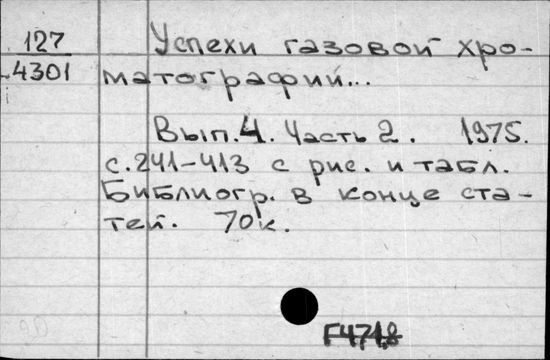 127
4301
Успехи газовой хро-
матографии...
Вып. 4. Часть 2. 1975.
с. 241-413 с рис. и табл.
Библиогр. в конце ста-
тей. 70к.